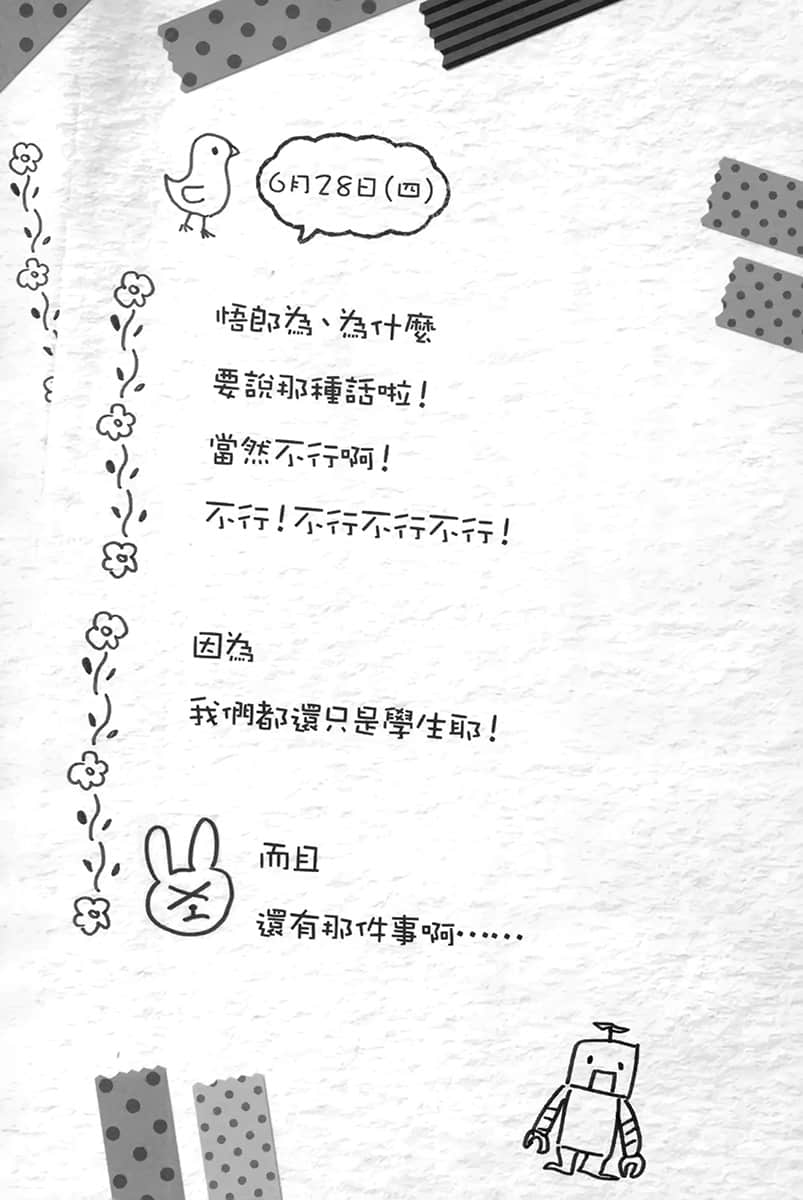 6月28日(四)
悟郎為、為什麼
要說那種話啦！
當然不行啊！
不行！不行不行不行！
因為
我們都還只是學生耶！
而且
還有那件事啊……